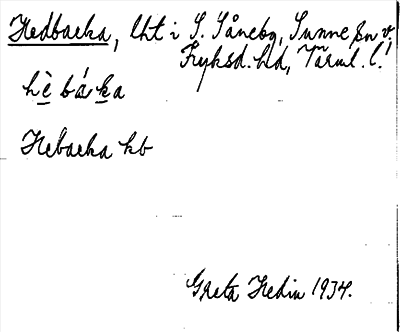 Hedbacka, lht i S. Såneby, Sunne sn o.
Fryksd. hd, Värml. l.
hè báka
Hebacka kb
Greta Hedin 1934.